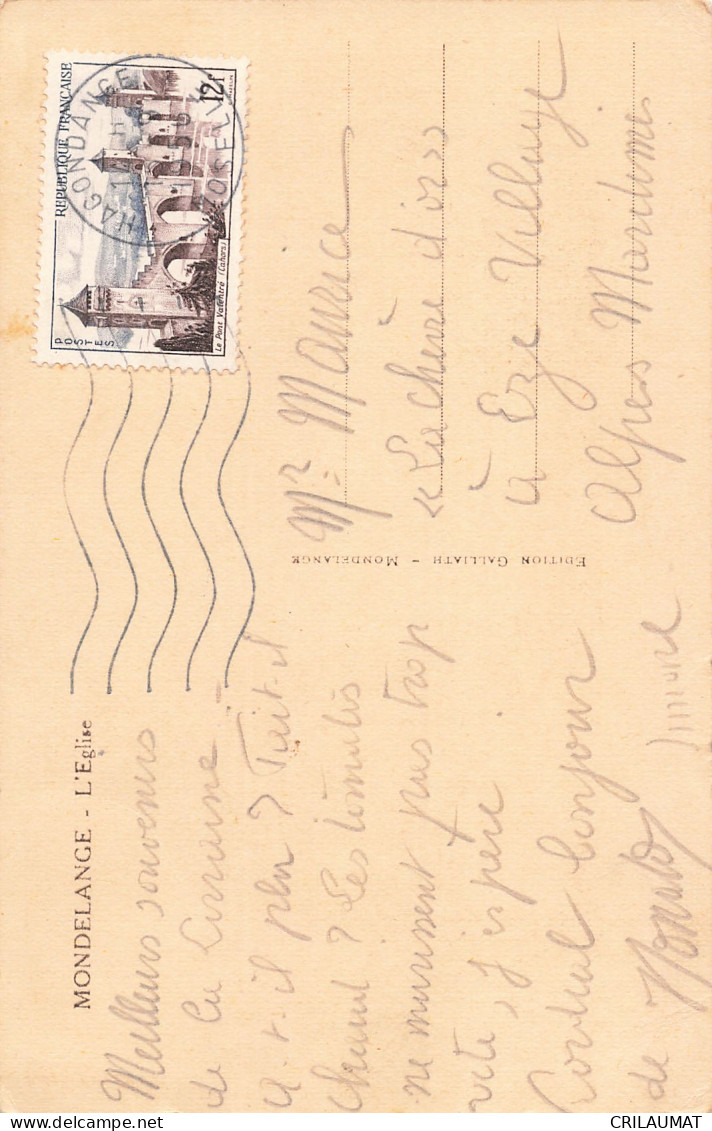 MONDELANGE - L'Eglise
Meilleurs souvenirs
de la Lorraine
a-t-il plu ? Fait-il
chaud ? Les tomates
ne murissent pas trop
vite, j'espère
Cordial bonjour
de
EDITION GALLIATH - MONDELANGE
REPUBLIQUE FRANÇAISE
12f
POSTES
Le Pont Valentré (Cahors)
HAGONDANGE
MOSELLE
Mr Maurice
« La chèvre d'or »
à Eze Village
Alpes Maritimes
CRILAUMAT